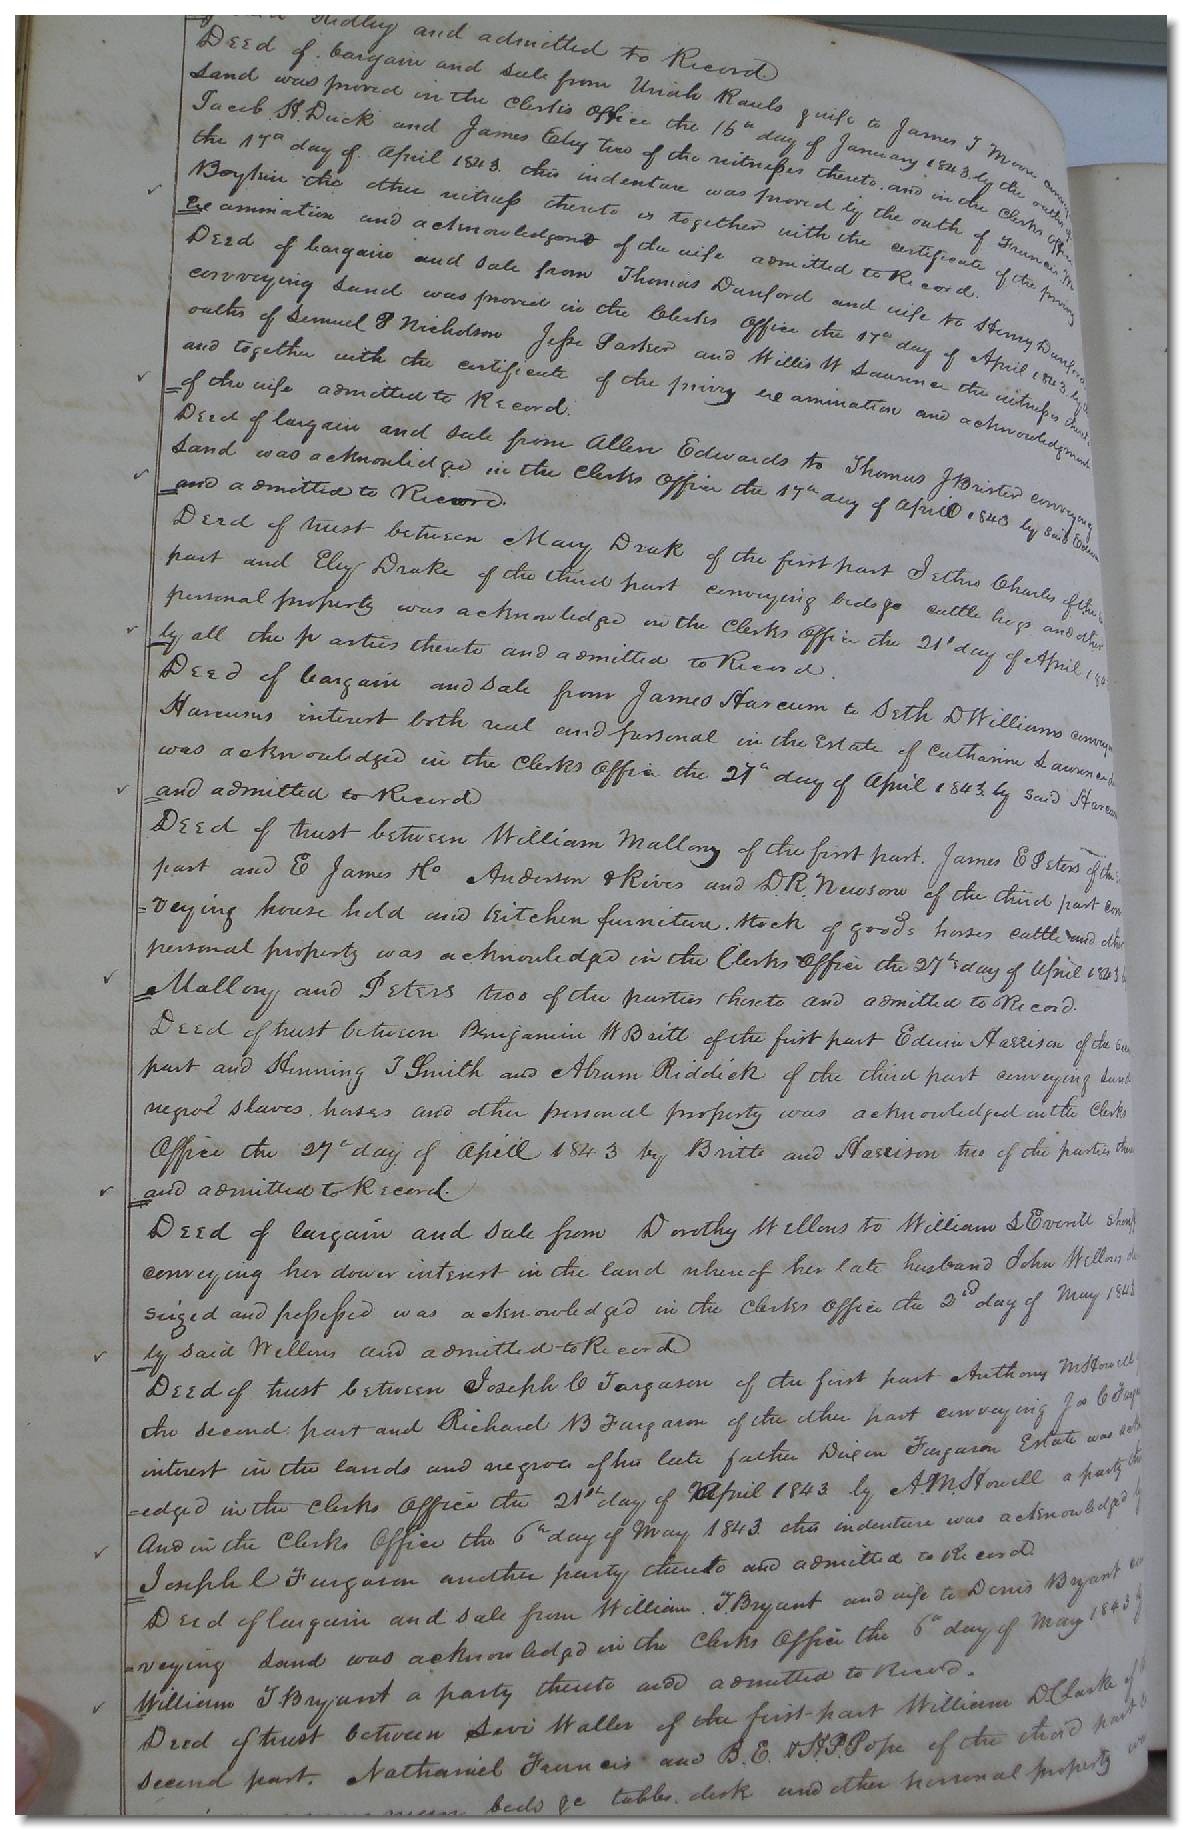 Ridley and admitted to Record
Deed of bargain and sale from Uriah Rawls & wife to James J Moore
Land was proved in the Clerks Office the 16th day of January 1843 by the oaths of
Jacob H. Duck and James Eley two of the witnesses thereto. and in the Clerks Office
the 17th day of April 1843. this indenture was proved by the oath of Francis M
Boykin the other witness thereto & together with the certificate of the privy
examination and acknowledgment of the wife admitted to Record.
Deed of bargain and sale from Thomas Danford and wife to Henry Danford
conveying Land was proved in the Clerks Office the 17th day of April 1843. by the
oaths of Samuel P Nicholson Jesse Parker and Willis W Lawrence the witnesses
and together with the certificate of the privy examination and acknowledgment
of the wife admitted to Record.
Deed of bargain and sale from Allen Edwards to Thomas J Brister conveying
Land was acknowledged in the Clerks Office the 17th day of April 1843 by said
and admitted to Record.
Deed of trust between Mary Drake of the first part Jethro Charles of the
part and Eley Drake of the third part conveying beds &c cattle hogs and other
personal property was acknowledged in the Clerks Office the 21st day of April
by all the parties thereto and admitted to Record.
Deed of bargain and sale from James Harcum to Seth D Williams
Harcums interest both real and personal in the Estate of Catharine
was acknowledged in the Clerks Office the 27th day of April 1843. by said
and admitted to Record
Deed of trust between William Mallory of the first part. James E Peters of the
part and E James Ho Anderson & Rives and D.R. Newsom of the third part con
=veying house hold and kitchen furniture. stock of goods horses cattle and other
personal property was acknowledged in the Clerks Office the 27th day of April 1843
Mallory and Peters two of the parties thereto and admitted to Record.
Deed of trust between Benjamin W Britt of the first part Edwin Harrison of the
part and Henning T Smith and Abram Riddick of the third part conveying
negroe slaves. horses and other personal property was acknowledged in the Clerks
Office the 27th day of April 1843 by Britt and Harrison two of the parties
and admitted to Record.
Deed of bargain and sale from Dorothy Wellons to William S Everett
conveying her dower interest in the land whereof her late husband John Wellons
seized and possessed was acknowledged in the Clerks Office the 2nd day of May 1843
by said Wellons and admitted to Record
Deed of trust between Joseph C Furgason of the first part Anthony M Howell
the second part and Richard B Furgason of the other part conveying Jos C
interest in the lands and negroes of his late father Furgason Estate was
=edged in the Clerks Office the 21st day of April 1843 by A.M. Howell a party
And in the Clerks Office the 6th day of May 1843. this indenture was acknowledged
Joseph C Furgason another party thereto and admitted to Record
Deed of bargain and sale from William. J. Bryant and wife to Denis Bryant con
=veying Land was acknowledged in the Clerks Office the 6th day of May 1843
William J Bryant a party thereto and admitted to Record.
Deed of trust between Levi Waller of the first part William D. Clarke of
second part. Nathaniel Francis and B.E. & H P Pope of the third part
beds &c tables. desk and other personal property